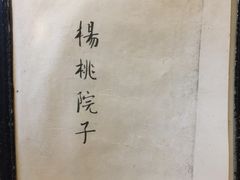 楊桃院子